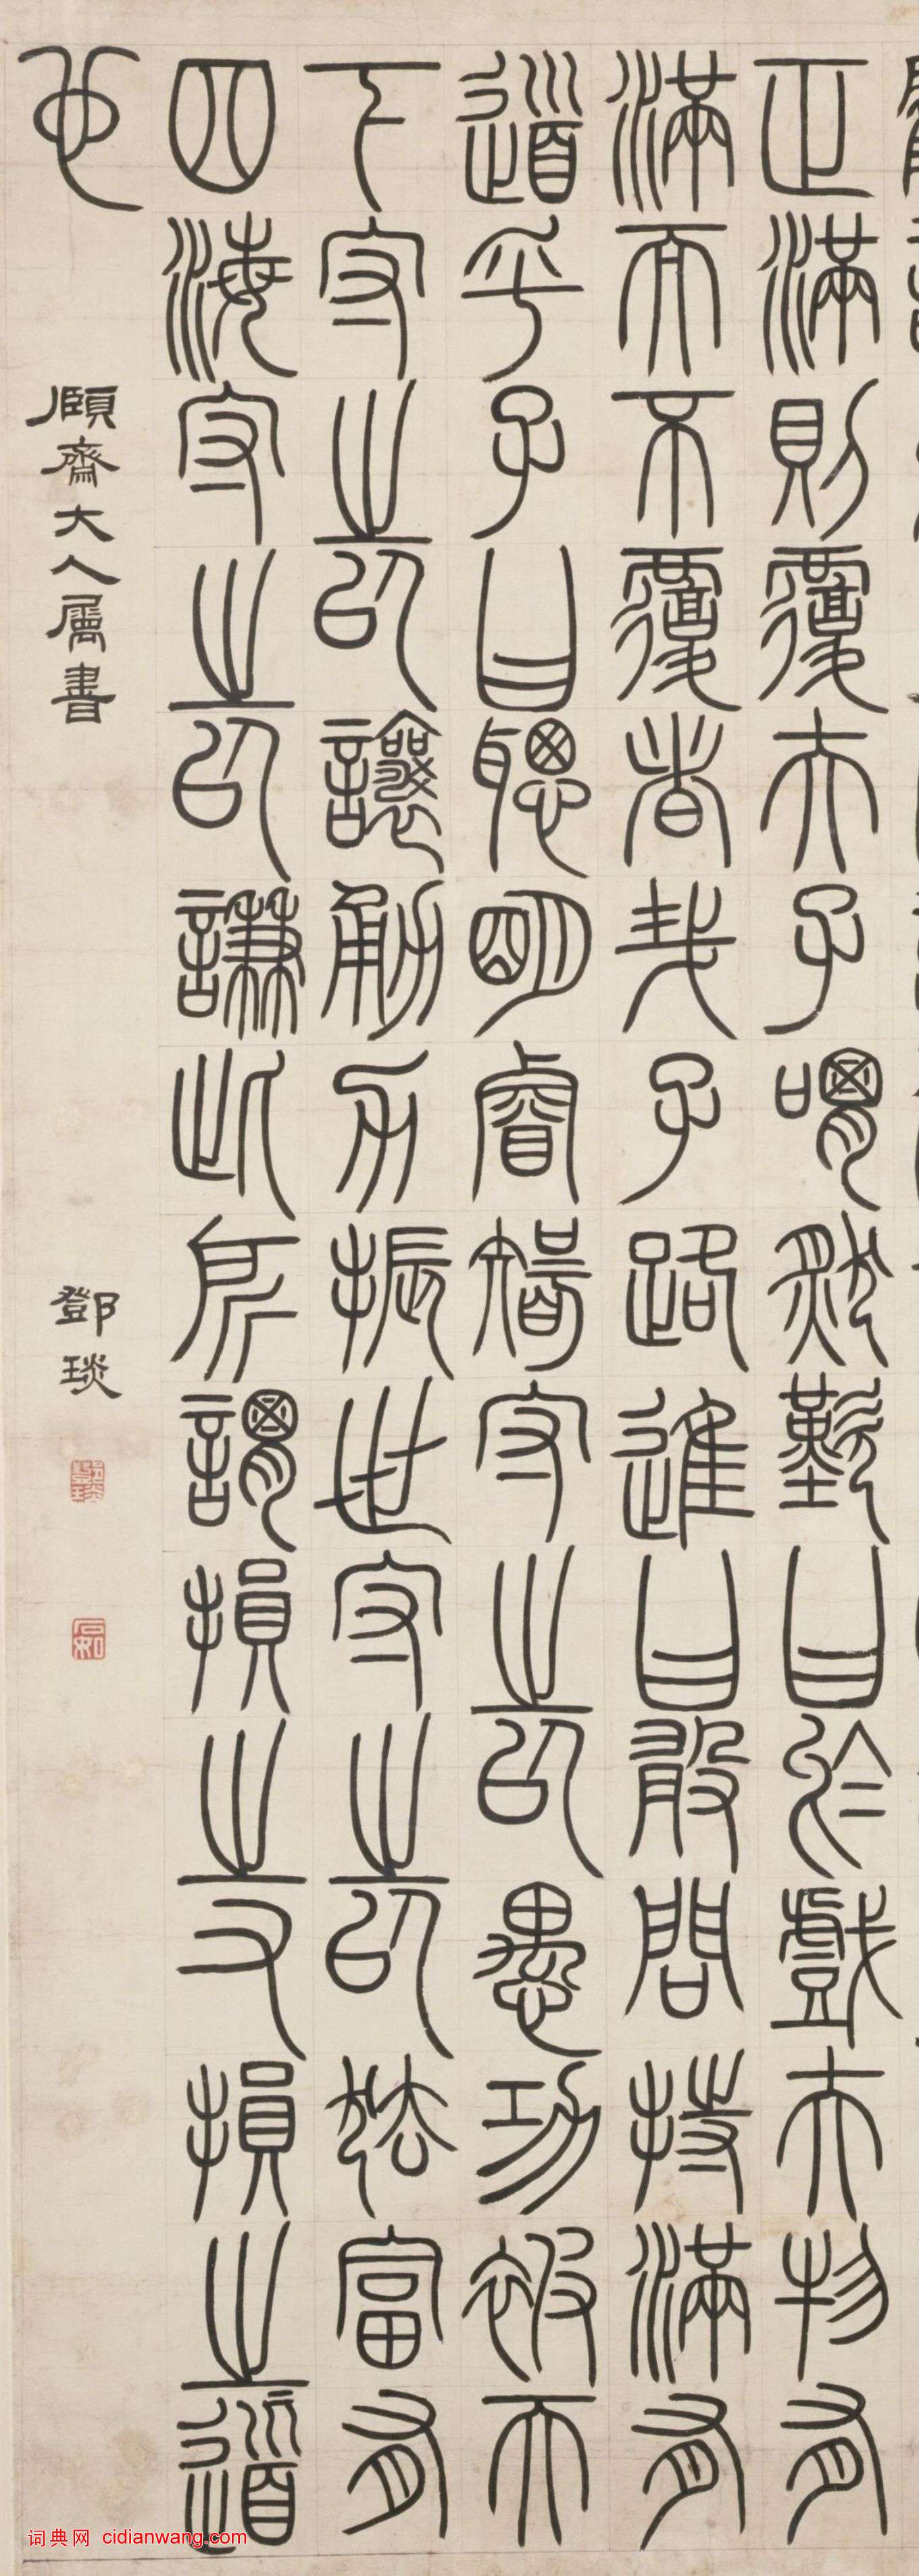 正滿則覆夫子喟然歎曰於戲夫物有
滿而不覆者哉子路進曰敢問持滿有
道乎子曰聰明睿智守之以愚功被天
下守之以讓勇力振世守之以怯富有
四海守之以謙此所謂損之又損之道
也
頤齋大人屬書
鄧琰
石如
词典网 cidianwang.com